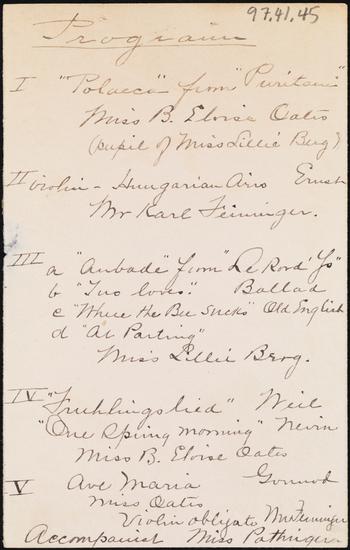 97.41.45
Program
I "Polacca" from "Puritani"
Miss B. Eloise Oates
(pupil of Miss Lillie Berg)
II Violin - Hungarian Airs Ernst
Mr Karl Feininger.
III a "Aubade" from "Le Roi d'Ys"
b "Two loves". Ballad
c "Where the Bee Sucks" Old English
d "At Parting"
Miss Lillie Berg.
IV "Fruhlingslied" Weil
"One Spring morning" Nevin
Miss B. Eloise Oates
V Ave Maria Gounod
Miss Oates
Violin obligato Mr Feininger
Accompanist Miss